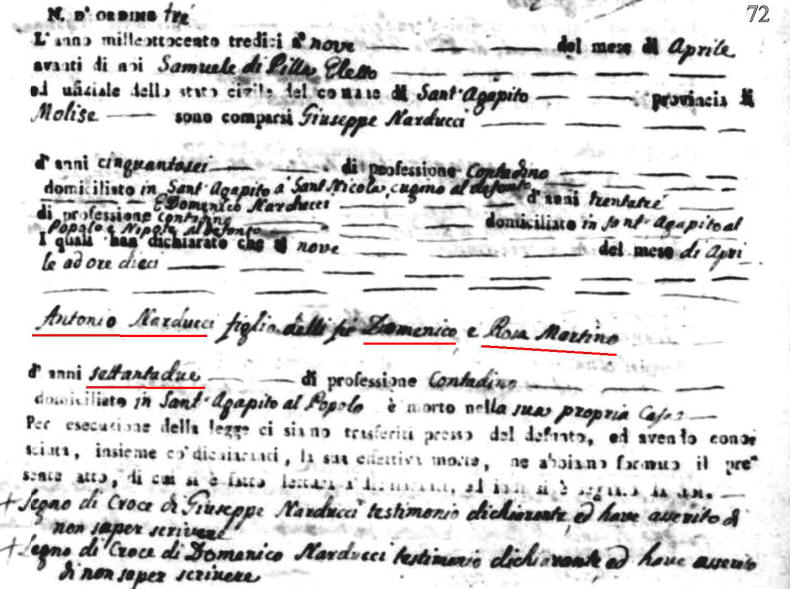 N. D'ORDINE tré
72
L'anno milleottocento tredici a' nove del mese di Aprile
avanti di noi Samuele di Pilla Eletto
ed ufficiale dello stato civile del comune di Sant'Agapito provincia di
Molise sono comparsi Giuseppe Narducci
d'anni cinquantasei di professione Contadino
domiciliato in Sant'Agapito a Sant Nicola, cugino al defonto
E Domenico Narducci d'anni trentatré
di professione Contadino domiciliato in Sant'Agapito al
Popolo e Nipote al defonto
I quali han dichiarato che il nove del mese di Apri
le ad ore dieci
Antonio Narducci figlio delli fù Domenico e Rosa Martino
d'anni settantadue di professione Contadino
domiciliato in Sant'Agapito al Popolo è morto nella sua propria Casa
Per esecuzione della legge ci siamo trasferiti presso del defunto, ed avendo conos
sciuta, insieme co' dichiaranti, la sua effettiva morte, ne abbiamo formato il pre
sente atto, di cui si è fatto lettura a' dichiaranti, ed
+ Segno di Croce di Giuseppe Narducci testimonio dichiarante, ed have asserito di
non saper scrivere
+ Segno di Croce di Domenico Narducci testimonio dichiarante, ed have asserito
di non saper scrivere